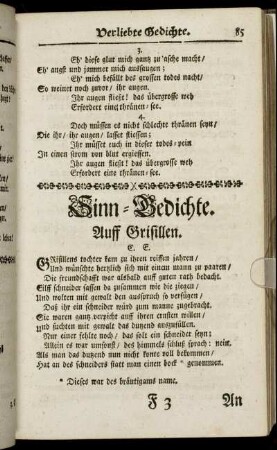 Verliebte Gedichte. 85
3.
Eh' diese glut mich gantz zu'asche macht/
Eh' angst und jammer mich aussaugen:
Eh' mich befällt des grossen todes nacht/
So weinet noch zuvor/ ihr augen.
Ihr augen fließt! das übergrosse weh
Erfordert eine thränen-see.
4.
Doch müssen es nicht schlechte thränen seyn/
Die ihr/ ihr augen/ lasset fliessen:
Ihr müsset euch in dieser todes-pein
In einen strom von blut ergiessen.
Ihr augen fließt! das übergrosse weh
Erfordert eine thränen-see.
Sinn-Gedichte.
Auff Grisillen.
C. E.
GRisillens tochter kam zu ihren reiffen jahren/
Und wünschte hertzlich sich mit einem mann zu paaren/
Die freundschafft war alsbald auff guten rath bedacht.
Elff schneider sassen da zusammen wie die ziegen/
Und wolten mit gewalt den ausspruch so verfügen/
Daß ihr ein schneider würd zum manne zugebracht.
Sie waren gantz verpicht auff ihren ernsten willen/
Und suchten mit gewalt das dutzend auszufüllen.
Nur einer fehlte noch/ das solt ein schneider seyn:
Allein es war umsonst/ des himmels schluß sprach: nein.
Als man das dutzend nun nicht konte voll bekommen/
Hat an des schneiders statt man einen bock * genommen.
* Dieses war des bräutigams name.
F 3 An